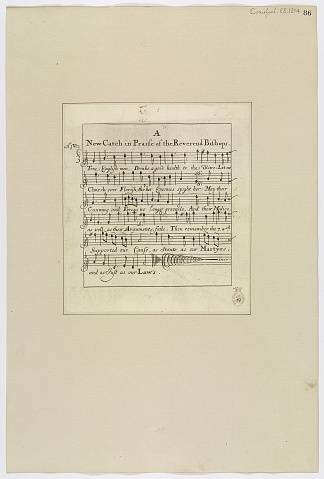 86
A
New Catch in Praise of the Reverend Bishops.
True English men Drinke a good health to the Miter Let our
Church ever Flourish, tho her Enemies spight her. May their
Cunning and Forces no longer prevaile, And their Malice
as well as their Arguments, faile. Then remember the 7. wch
Supported our Cause, as stoute as our Martyrs,
and as Just as our Laws.